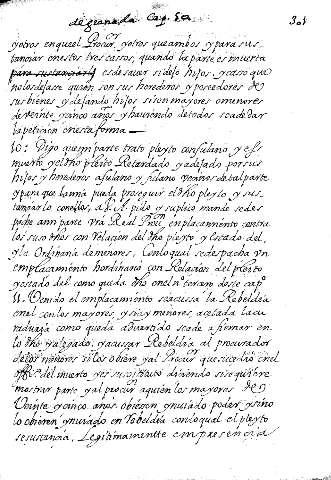 de granada Cap. 50 301
yotros en que el Procur. yotros que ambos y para sus
tanciar en estos tres cassos, quando la parte es muerta
para sustanciarse es de sauer si dejo hijos, y caso que
no los dejase quien son sus herederos y poseedores de
sus bienes y dejando hijos si son mayores o menores
de veinte y cinco años y hauiendo de todos se a de dar
la peticion en esta forma
10: Digo que mi parte trato pleyto con fulano y es
muerto y el dho pleito Retardado y a dejado por sus
hijos y herederos a fulano y zutano vecinos de tal parte
y para que la mia pueda proseguir el dho pleyto y sus
tanciarlo con ellos, a V. A. pido y suplico mande se des
pache a mi parte vra Real Prouin emplacamiento contra
los susodhos con relacion del dho pleyto y estado del,
y la ordinaria de menores, con lo qual se despacha vn
emplacamiento hordinario con Relacion del pleito
y estado del como queda dho en el n. tercero deste cap.
11. Venido el emplacamiento se acussa la Rebeldia
en el con los mayores, y si ay menores, acetada la cu
raduria como queda aduertido se a de afirmar en
lo dho y alegado, y acusar Rebeldia al procurador
de los menores si los obiere y al Procur que sucedio en el
offi.º del muerto y es sustituto diciendo si se quiere
mostrar parte y al procur a quien los mayores de
Veinte y cinco años obieren ynuiado poder y si no
lo obieren ynuiado en Rebeldia con lo qual el pleyto
se sustancia, Legitimamente en presencia